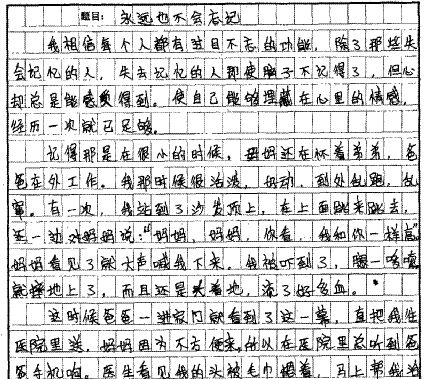 题目: 永远也不会忘记
我相信每个人都有过目不忘的功能,除了那些失
会记忆的人,失去记忆的人即使脑子不记得了,但心
却总是能感觉得到。使自己能够埋藏在心里的情感,
经历一次就已足够。
记得那是在很小的时候,妈妈还在怀着弟弟,爸
爸在外工作。我那时候很活泼,好动,到处乱跑,乱
窜。有一次,我站到了沙发顶上,在上面跳来跳去,
还一边对妈妈说:“妈妈,妈妈,你看,我和你一样高”
妈妈看见了就大声喊我下来。我被吓到了,腿一哆嗦
就摔地上了,而且还是头着地,流了好多血。
这时候爸爸一进家门就看到了这一幕,直把我往
医院里送,妈妈因为不方便来,所以在医院里总听到爸
爸手机响。医生看见我的头被毛巾裹着,马上帮我治